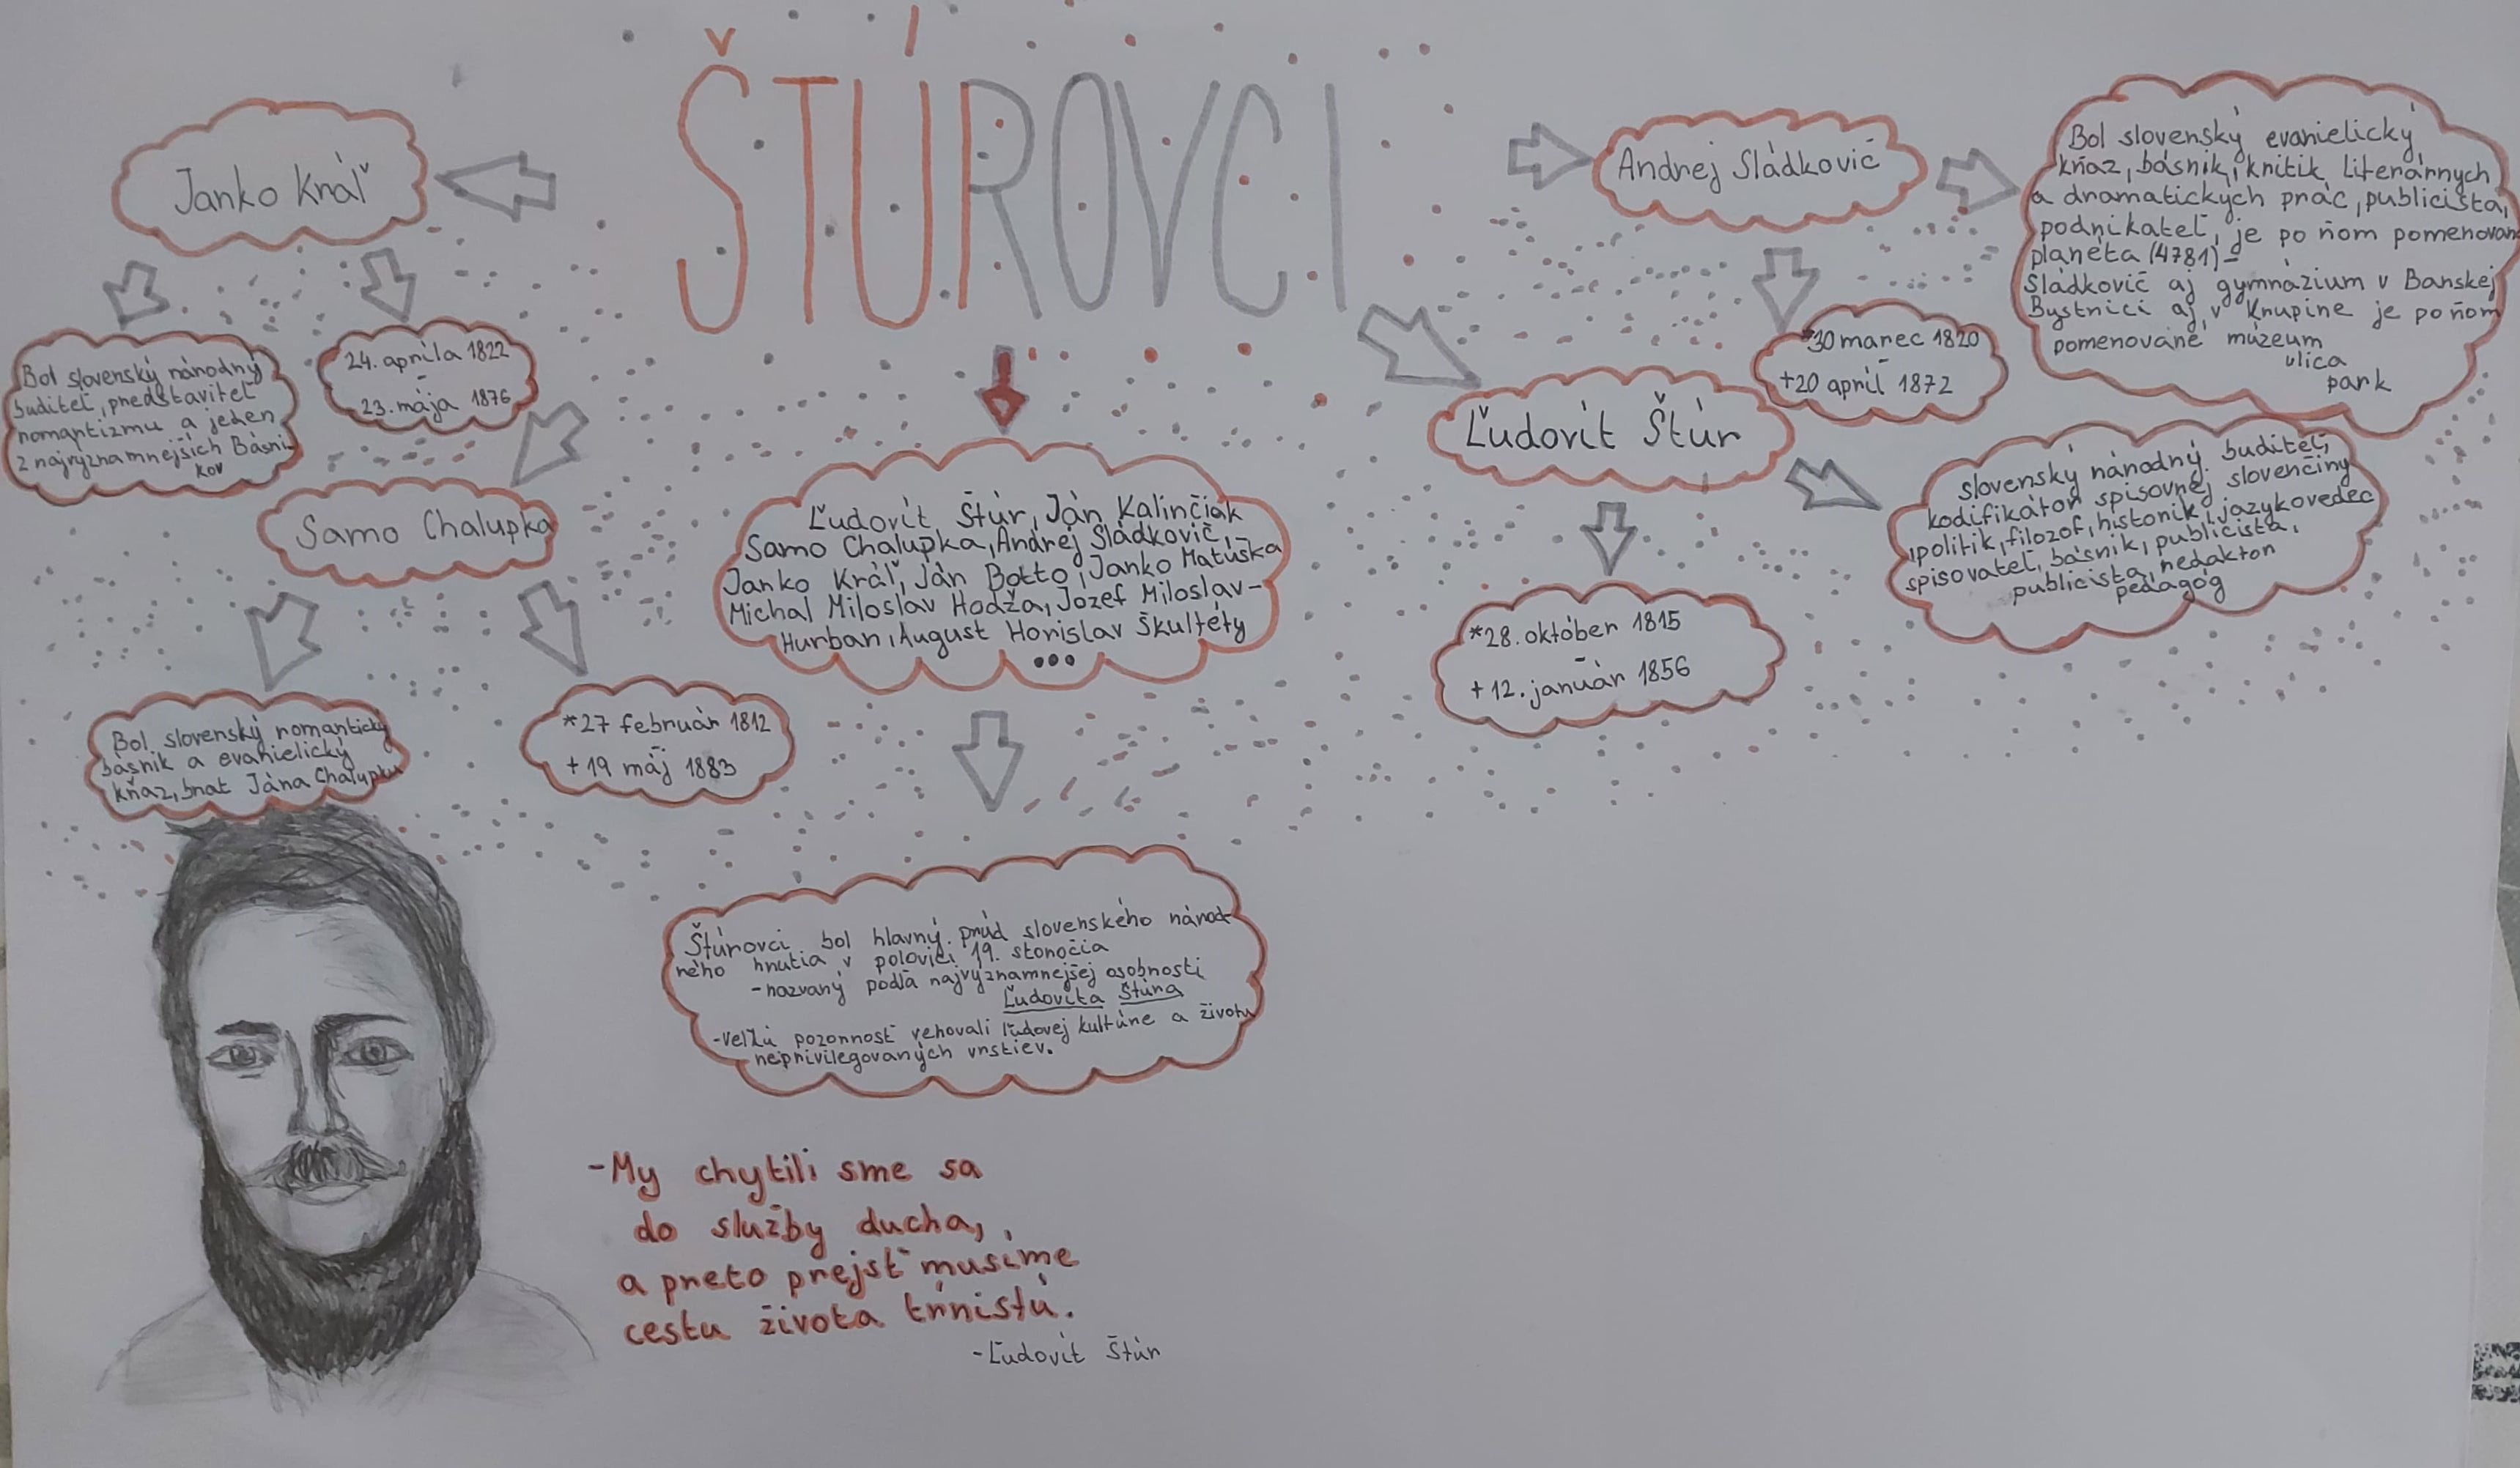 ŠTÚROVCI
Janko Kráľ
Bol slovenský národný
buditeľ, predstaviteľ
romantizmu a jeden
z najvýznamnejších Básni
kov
24. apríla 1822
-
23. mája 1876
Samo Chalupka
Bol slovenský romantický
básnik a evanielický
kňaz, brat Jána Chalupku
*27 február 1812
-
+19 máj 1883
Ľudovít Štúr, Ján Kalinčiak
Samo Chalupka, Andrej Sládkovič,
Janko Kráľ, Ján Botto, Janko Matúška
Michal Miloslav Hodža, Jozef Miloslav-
Hurban, August Horislav Škultéty
...
Štúrovci bol hlavný prúd slovenského národ-
ného hnutia v polovici 19. storočia
-nazvaný podľa najvýznamnejšej osobnosti
Ľudovíta Štúra
-veľkú pozornosť venovali ľudovej kultúre a životu
neprivilegovaných vrstiev.
-My chytili sme sa
do služby ducha,
a preto prejsť musíme
cestu života tŕnistú.
-Ľudovít Štúr
Andrej Sládkovič
*30 marec 1820
-
+20 apríl 1872
Bol slovenský evanielický
kňaz, básnik, kritik literárnych
a dramatických prác, publicista,
podnikateľ, je po ňom pomenovaná
planéta (4781)-
Sládkovič aj gymnázium v Banskej
Bystrici aj v Krupine je po ňom
pomenované múzeum
ulica
park
Ľudovít Štúr
*28. október 1815
-
+12. január 1856
slovenský národný buditeľ,
kodifikátor spisovnej slovenčiny
politik, filozof, historik, jazykovedec
spisovateľ, básnik, publicista,
publicista, redaktor
pedagóg